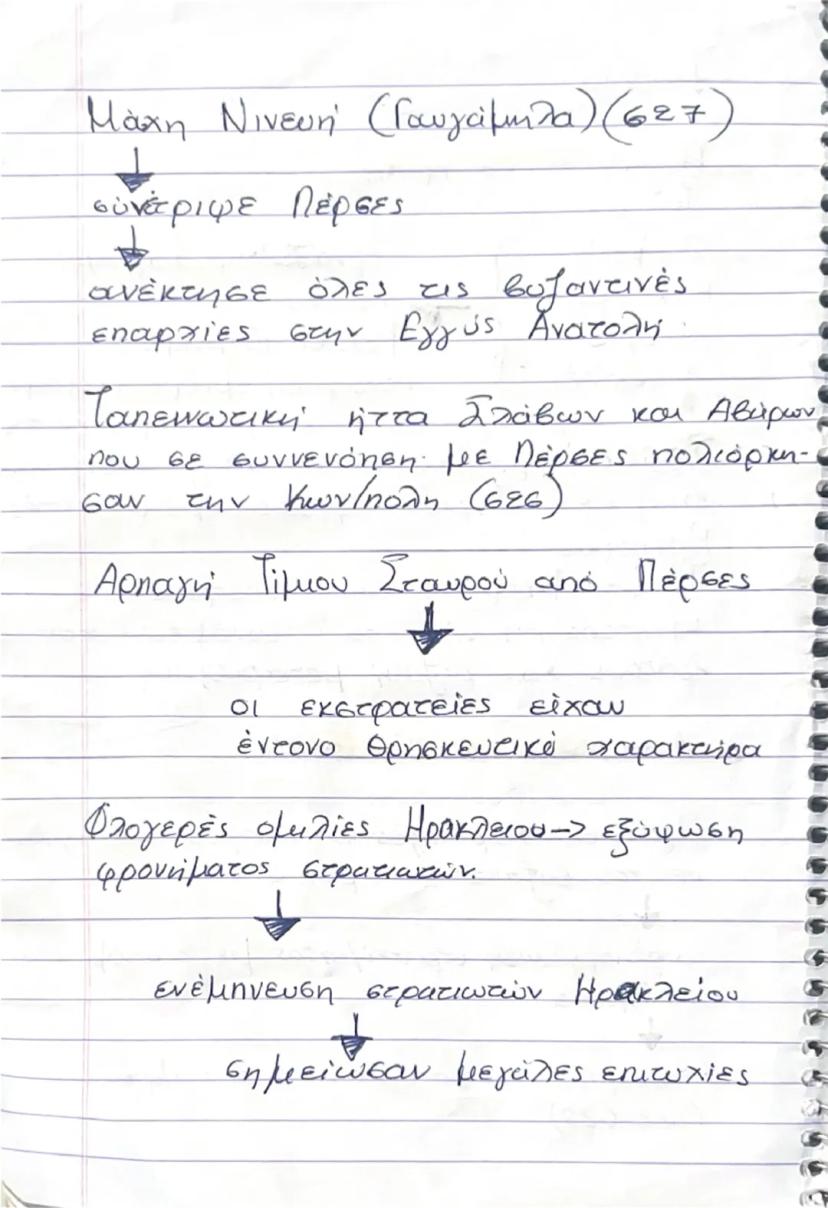 Μάχη Νινευή (Γαυγάμηλα) (627)
↓
συνέτριψε Πέρσες
↓
ανέκτησε όλες τις βυζαντινές
επαρχίες στην Εγγύς Ανατολή
Ταπεινωτική ήττα Σλάβων και Αβάρων
που σε συννενόηση με Πέρσες πολιόρκη-
σαν την Κων/πολη (626)
Αρπαγή Τίμιου Σταυρού από Πέρσες
↓
οι εκστρατείες είχαν
έντονο θρησκευτικό χαρακτήρα
Φλογερές ομιλίες Ηρακλειου → εξύψωση
φρονήματος στρατιωτών.
↓
ενέμπνευση στρατιωτών Ηρακλείου
↓
σημείωσαν μεγάλες επιτυχίες